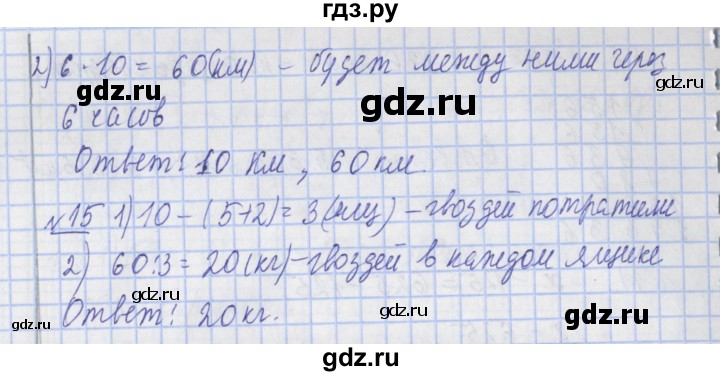 гдз.ру
2) 6 · 10 = 60(км) – будет между ними через
6 часов
Ответ: 10 км, 60 км.
№15 1) 10 – (5+2) = 3 (ящ) – гвоздей потратили
2) 60:3 = 20 (кг) – гвоздей в каждом ящике
Ответ: 20 кг.
gdz.ru
gdz.ru
gdz.ru
gdz.ru
gdz.ru
gdz.ru
gdz.ru
gdz.ru
gdz.ru
gdz.ru
gdz.ru